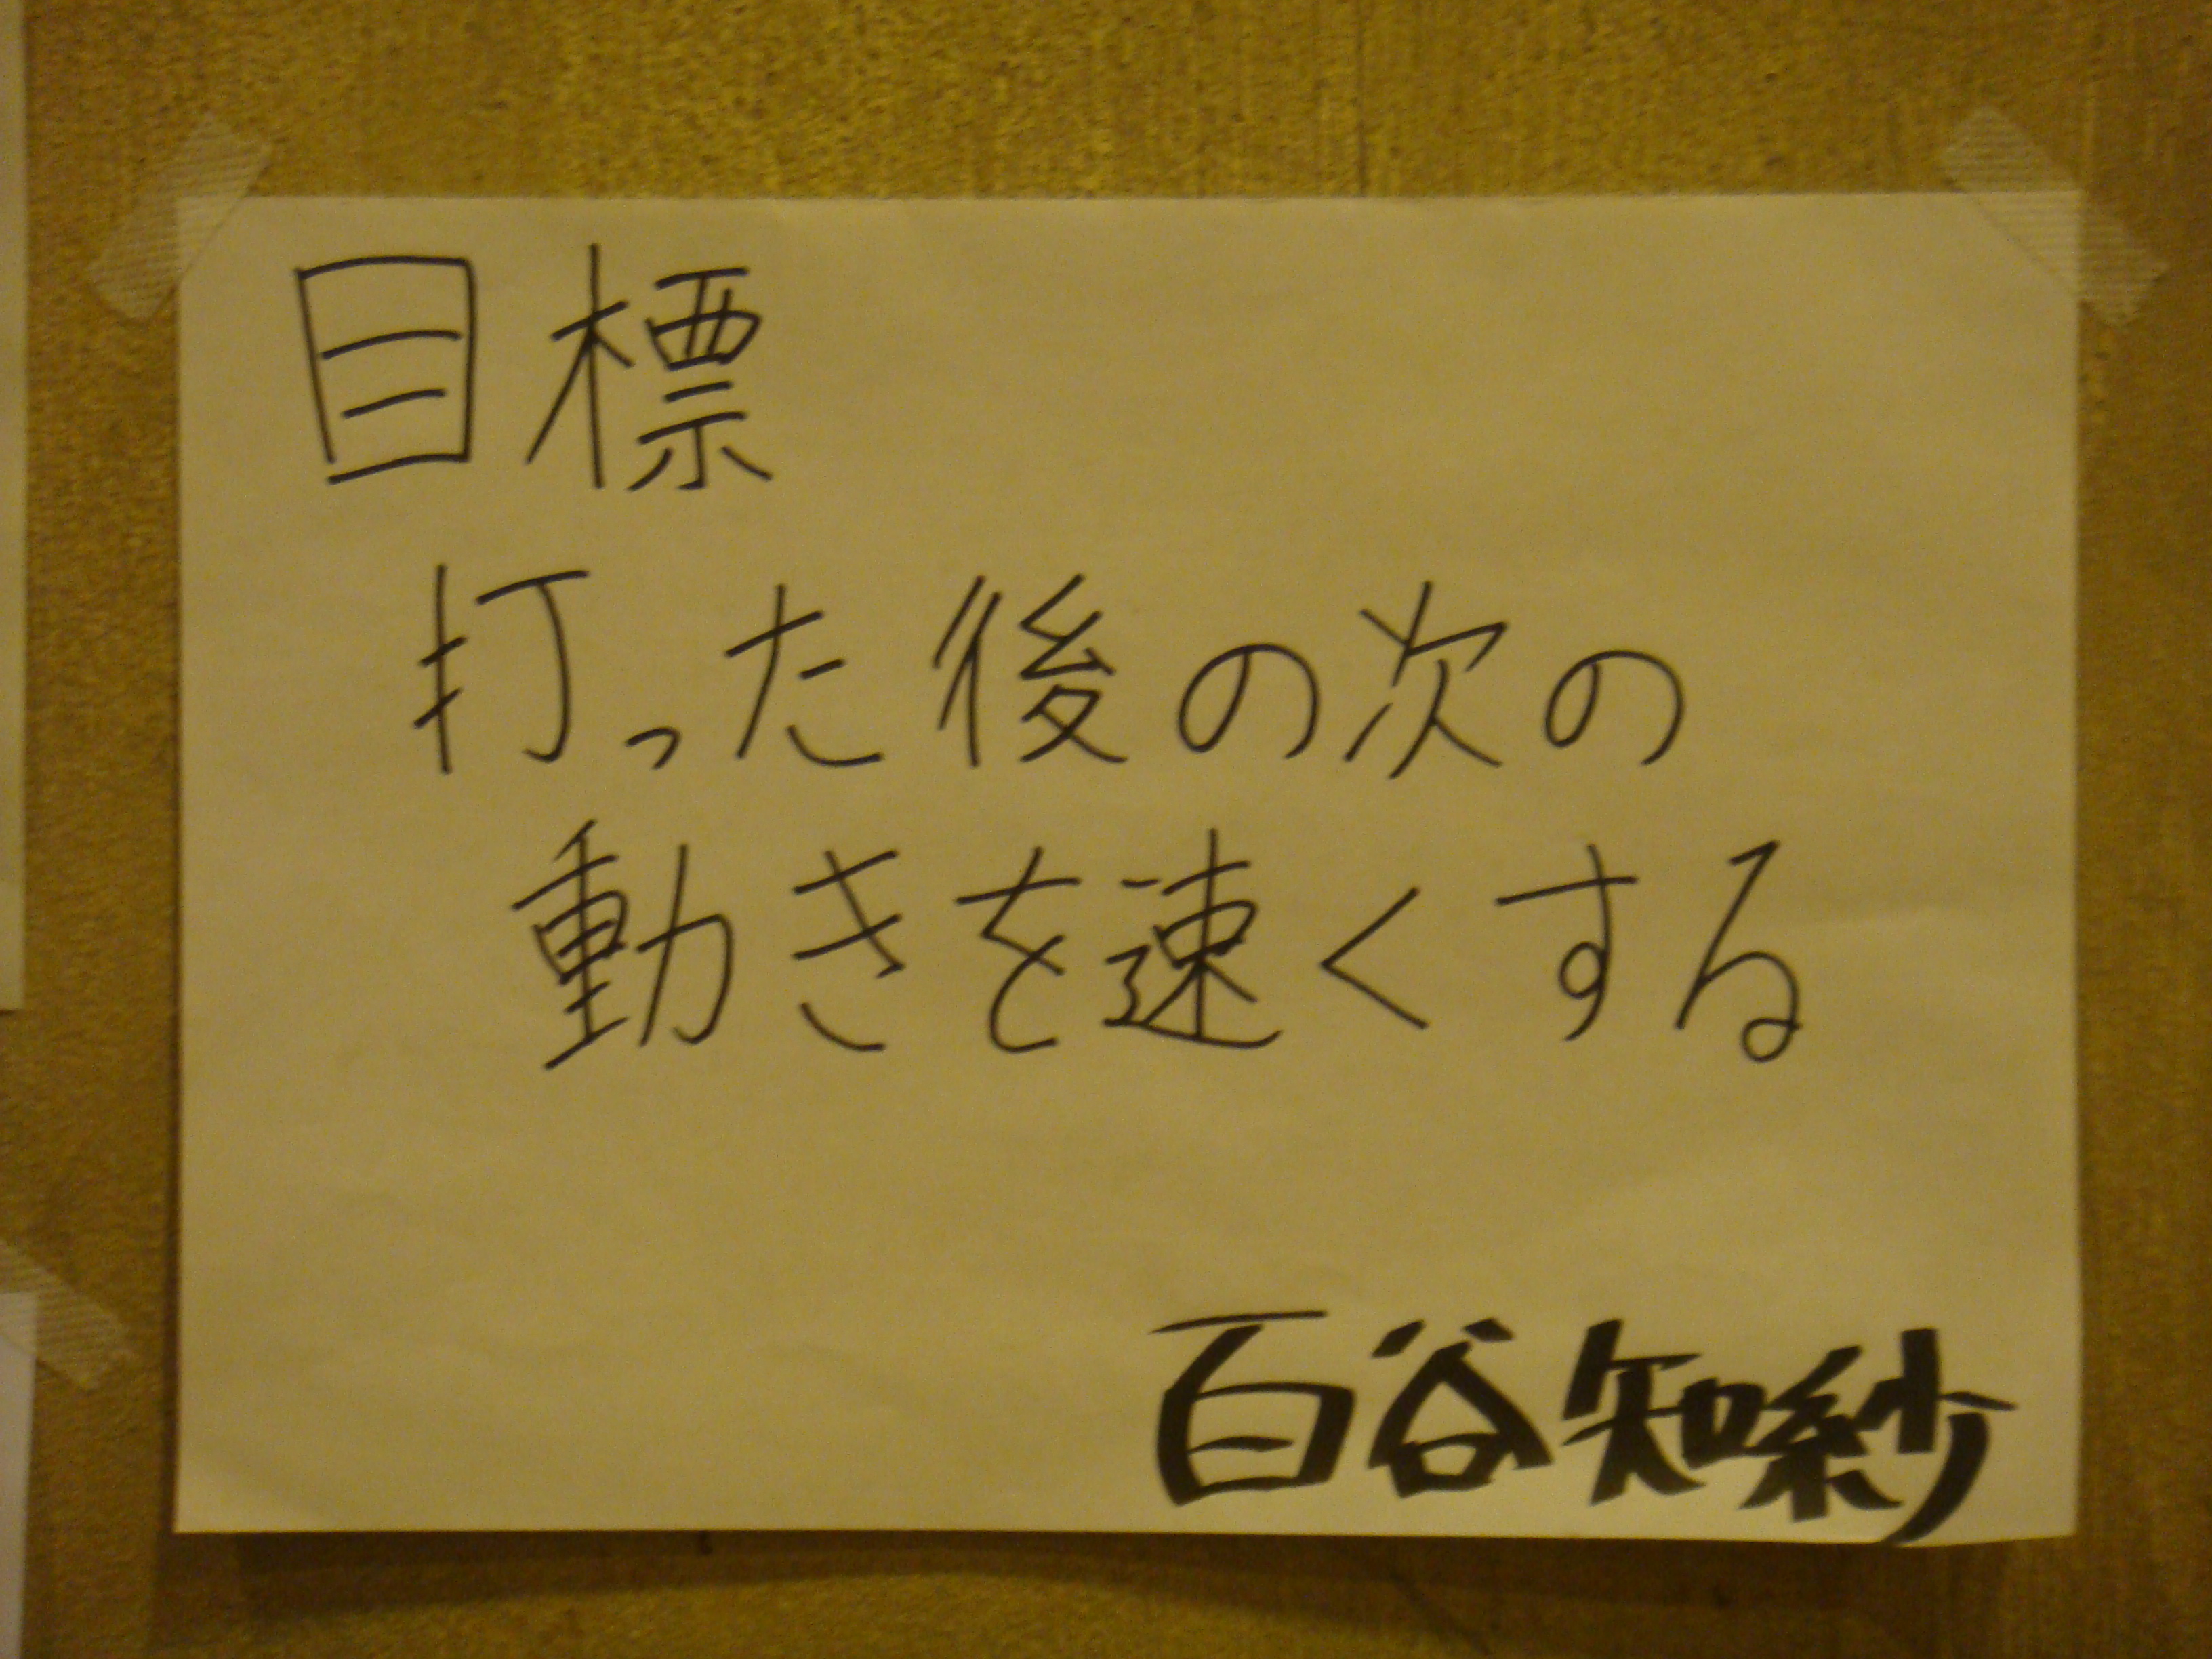 目標
打った後の次の
動きを速くする
百谷知紗